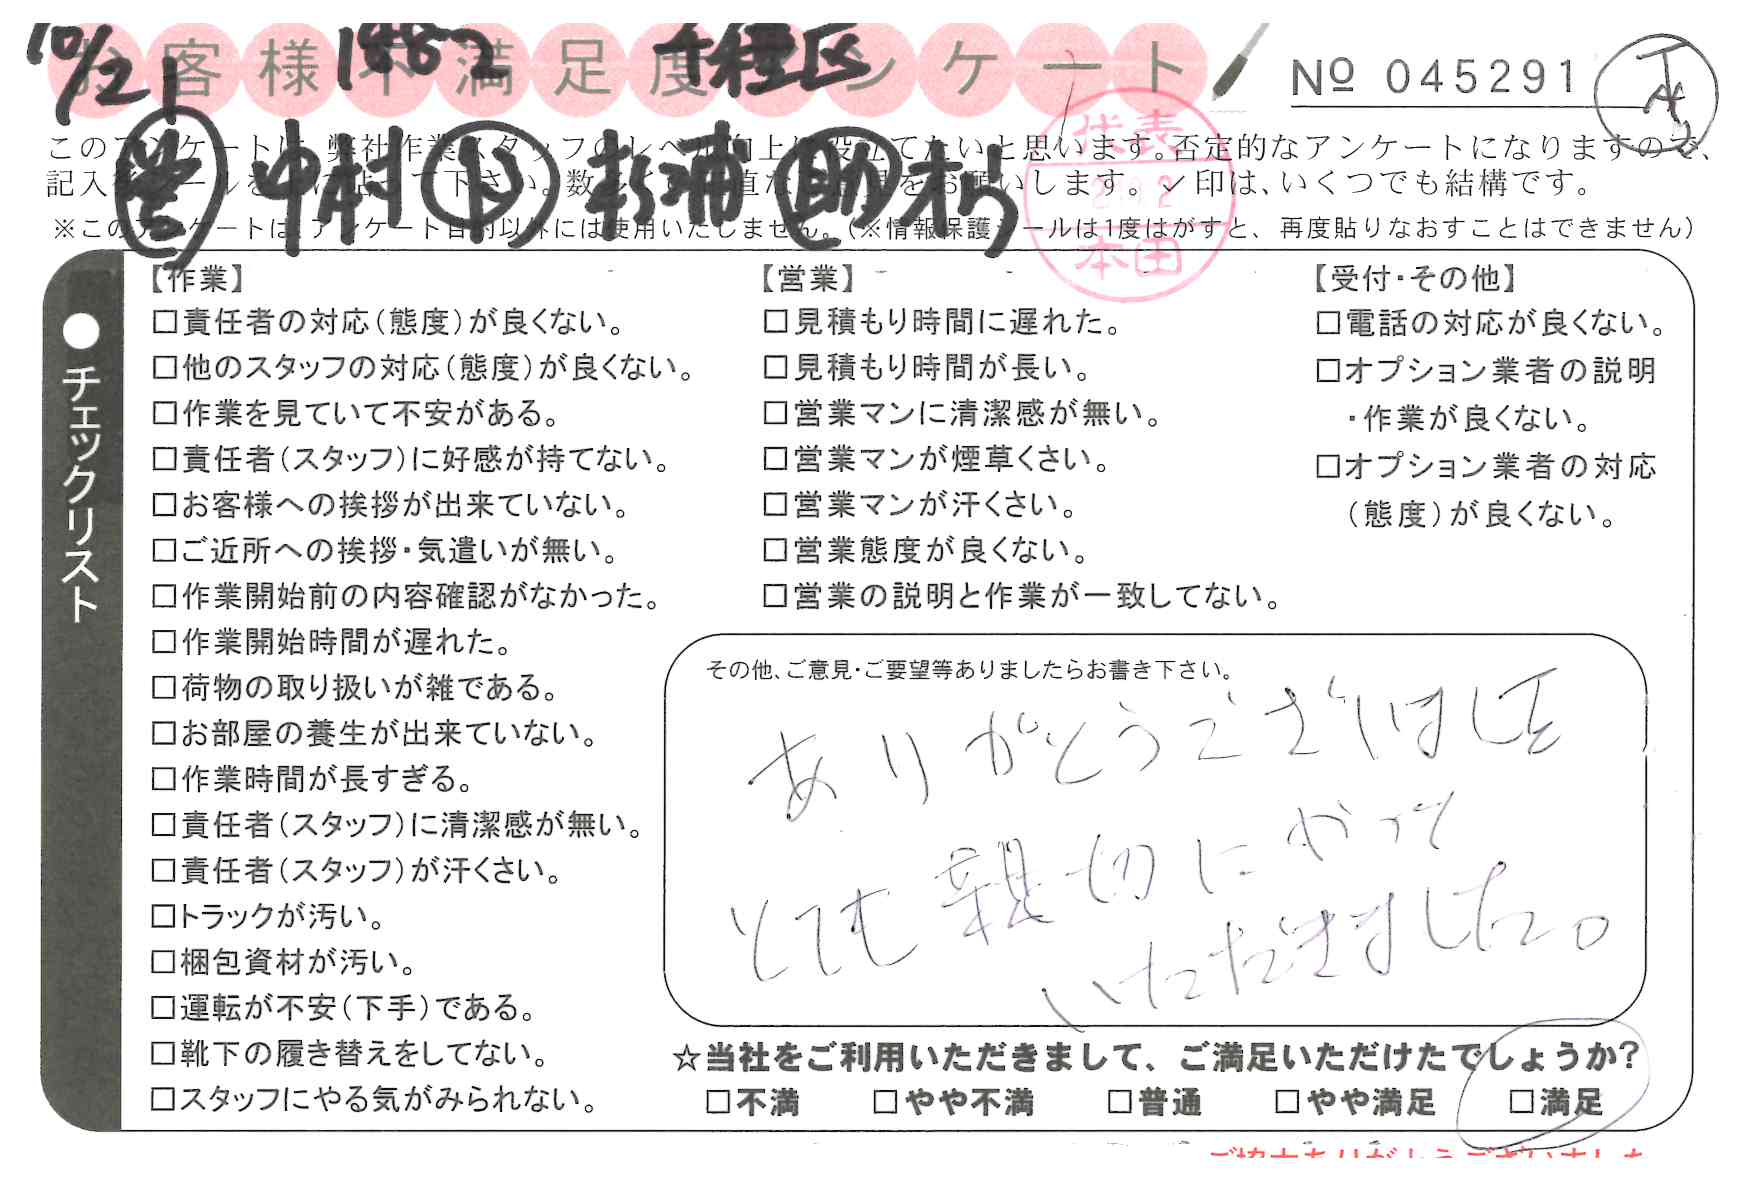 10/21 1482 千種区
お客様不満足度アンケート
№ 045291
営 中村 ド 杉浦 助 木村
このアンケートは、弊社作業スタッフのレベル向上に役立てたいと思います。否定的なアンケートになりますので、
記入後シールを上に貼って下さい。数多くの正直なご意見をお願いします。✓印は、いくつでも結構です。
※このアンケートは、アンケート目的以外には使用いたしません。(※情報保護シールは1度はがすと、再度貼りなおすことはできません)
代表
本田
●チェックリスト
【作業】
□責任者の対応(態度)が良くない。
□他のスタッフの対応(態度)が良くない。
□作業を見ていて不安がある。
□責任者(スタッフ)に好感が持てない。
□お客様への挨拶が出来ていない。
□ご近所への挨拶・気遣いが無い。
□作業開始前の内容確認がなかった。
□作業開始時間が遅れた。
□荷物の取り扱いが雑である。
□お部屋の養生が出来ていない。
□作業時間が長すぎる。
□責任者(スタッフ)に清潔感が無い。
□責任者(スタッフ)が汗くさい。
□トラックが汚い。
□梱包資材が汚い。
□運転が不安(下手)である。
□靴下の履き替えをしてない。
□スタッフにやる気がみられない。
【営業】
□見積もり時間に遅れた。
□見積もり時間が長い。
□営業マンに清潔感が無い。
□営業マンが煙草くさい。
□営業マンが汗くさい。
□営業態度が良くない。
□営業の説明と作業が一致してない。
【受付・その他】
□電話の対応が良くない。
□オプション業者の説明
・作業が良くない。
□オプション業者の対応
(態度)が良くない。
その他、ご意見・ご要望等ありましたらお書き下さい。
ありがとうございました
とても親切にやって
いただきました。
☆当社をご利用いただきまして、ご満足いただけたでしょうか?
□不満 □やや不満 □普通 □やや満足 □満足
ご協力ありがとうございました